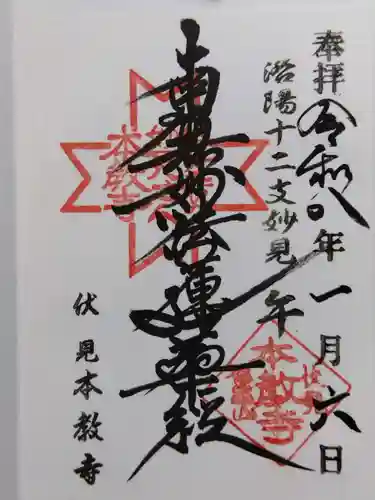 奉拝
令和八年一月六日
洛陽十二支妙見
午
南無妙法蓮華経
伏見本教寺
本教寺
本教寺